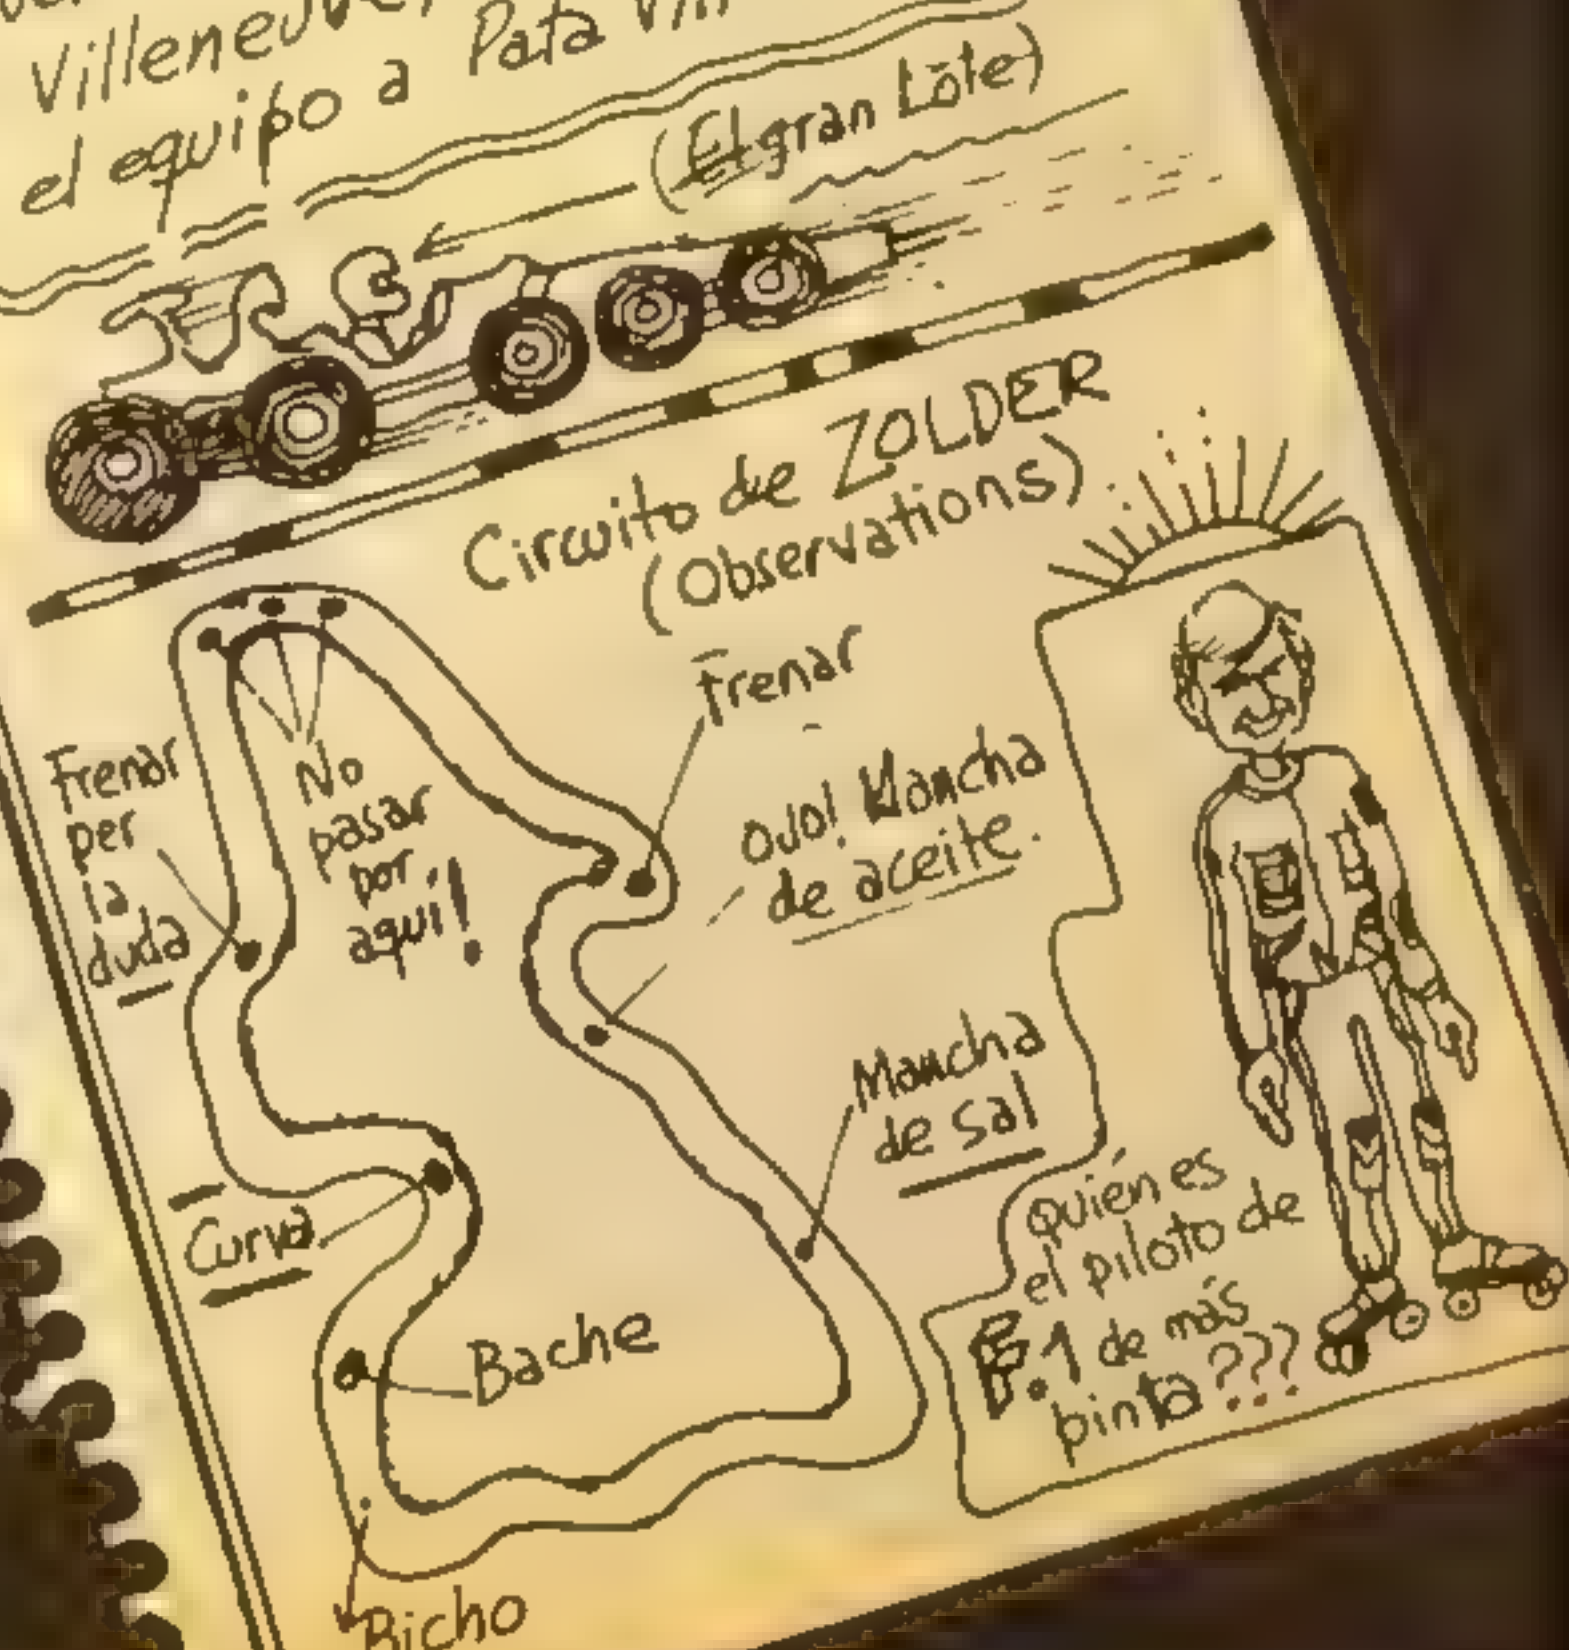 Villeneuve,
el equipo a Pata
(El gran Lote)
Circuito de ZOLDER
(Observations)
Frenar
Frenar
per
la
duda
No
pasar
por
aquí!
OJO! Mancha
de aceite.
Mancha
de sal
Curva
Bache
Bicho
quién es
el piloto de
F.1 de más
pinta???